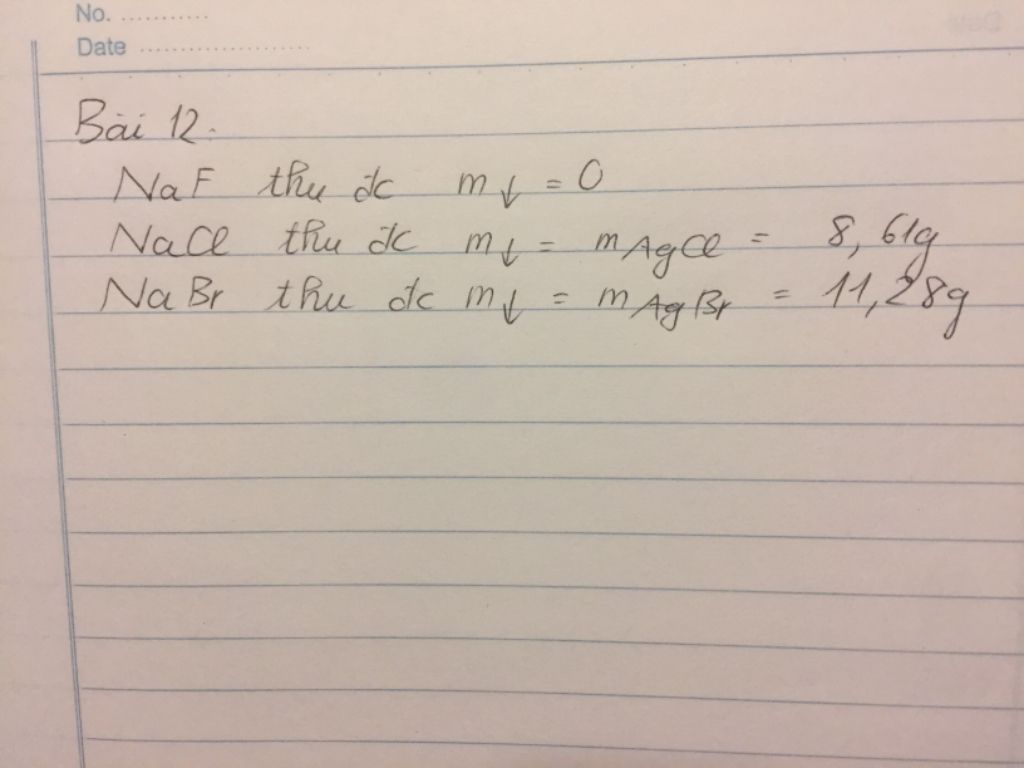 No. ...........
Date ......................
Bài 12.
NaF thu đc m↓ = 0
NaCl thu đc m↓ = m AgCl = 8,61g
NaBr thu đc m↓ = m AgBr = 11,28g